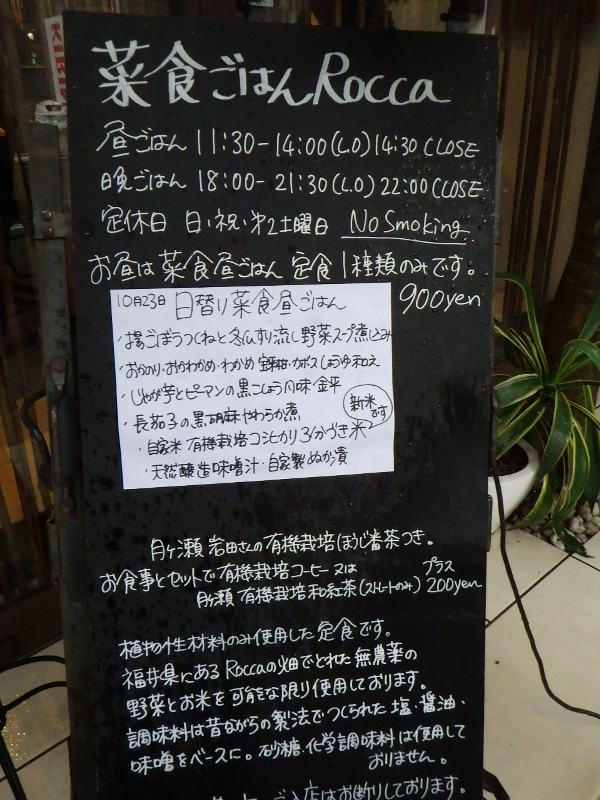 菜食ごはんRocca
昼ごはん 11:30-14:00(L.O)14:30 CLOSE
晩ごはん 18:00-21:30(L.O)22:00 CLOSE
定休日 日・祝・第2土曜日 No Smoking
お昼は菜食昼ごはん 定食1種類のみです。
900yen
10月23日 日替り菜食昼ごはん
・揚ごぼうつくねと冬瓜すり流し野菜スープ煮込み
・おかのり・おかわかめ・わかめ カボスしょうゆ和え
・じゃが芋とピーマンの黒こしょう風味金平
・長茄子の黒胡麻やわらか煮
新米です
・自家米 有機栽培コシヒカリ 3分づき米
・天然醸造味噌汁・自家製ぬか漬
月ヶ瀬 岩田さんの有機栽培ほうじ番茶つき。
お食事とセットで有機栽培コーヒー又は プラス
月ヶ瀬 有機栽培和紅茶(ストレートのみ) 200yen
植物性材料のみ使用した定食です。
福井県にあるRoccaの畑でとれた無農薬の
野菜とお米を可能な限り使用しております。
調味料は昔ながらの製法でつくられた塩・醤油・
味噌をベースに。砂糖・化学調味料は使用して
おりません。
ご入店はお断りしております。